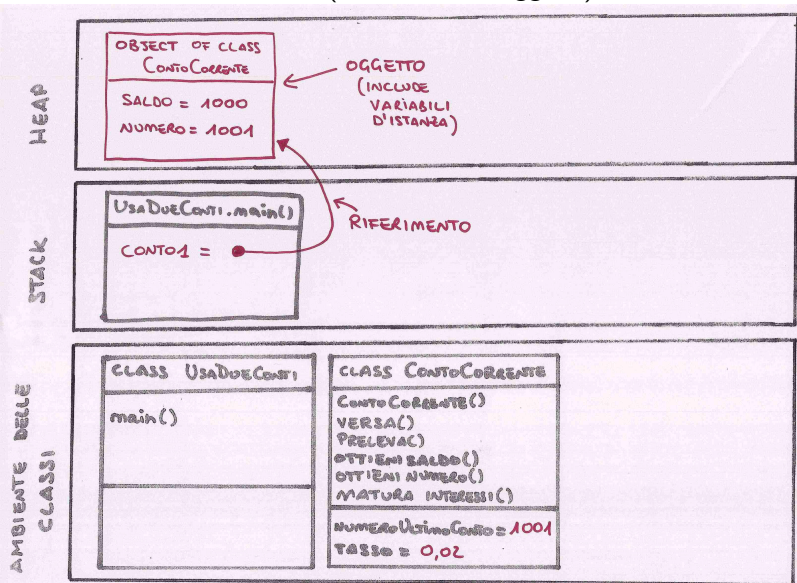 HEAP
OBJECT OF CLASS
CONTOCORRENTE
SALDO = 1000
NUMERO = 1001
OGGETTO
(INCLUDE
VARIABILI
D'ISTANZA)
STACK
USADUECONTI.main()
CONTO1 =
RIFERIMENTO
AMBIENTE DELLE
CLASSI
CLASS USADUECONTI
main()
CLASS CONTOCORRENTE
CONTOCORRENTE()
VERSA()
PRELEVA()
OTTIENI SALDO()
OTTIENI NUMERO()
MATURA INTERESSI()
NUMEROULTIMOCONTO = 1001
TASSO = 0,02